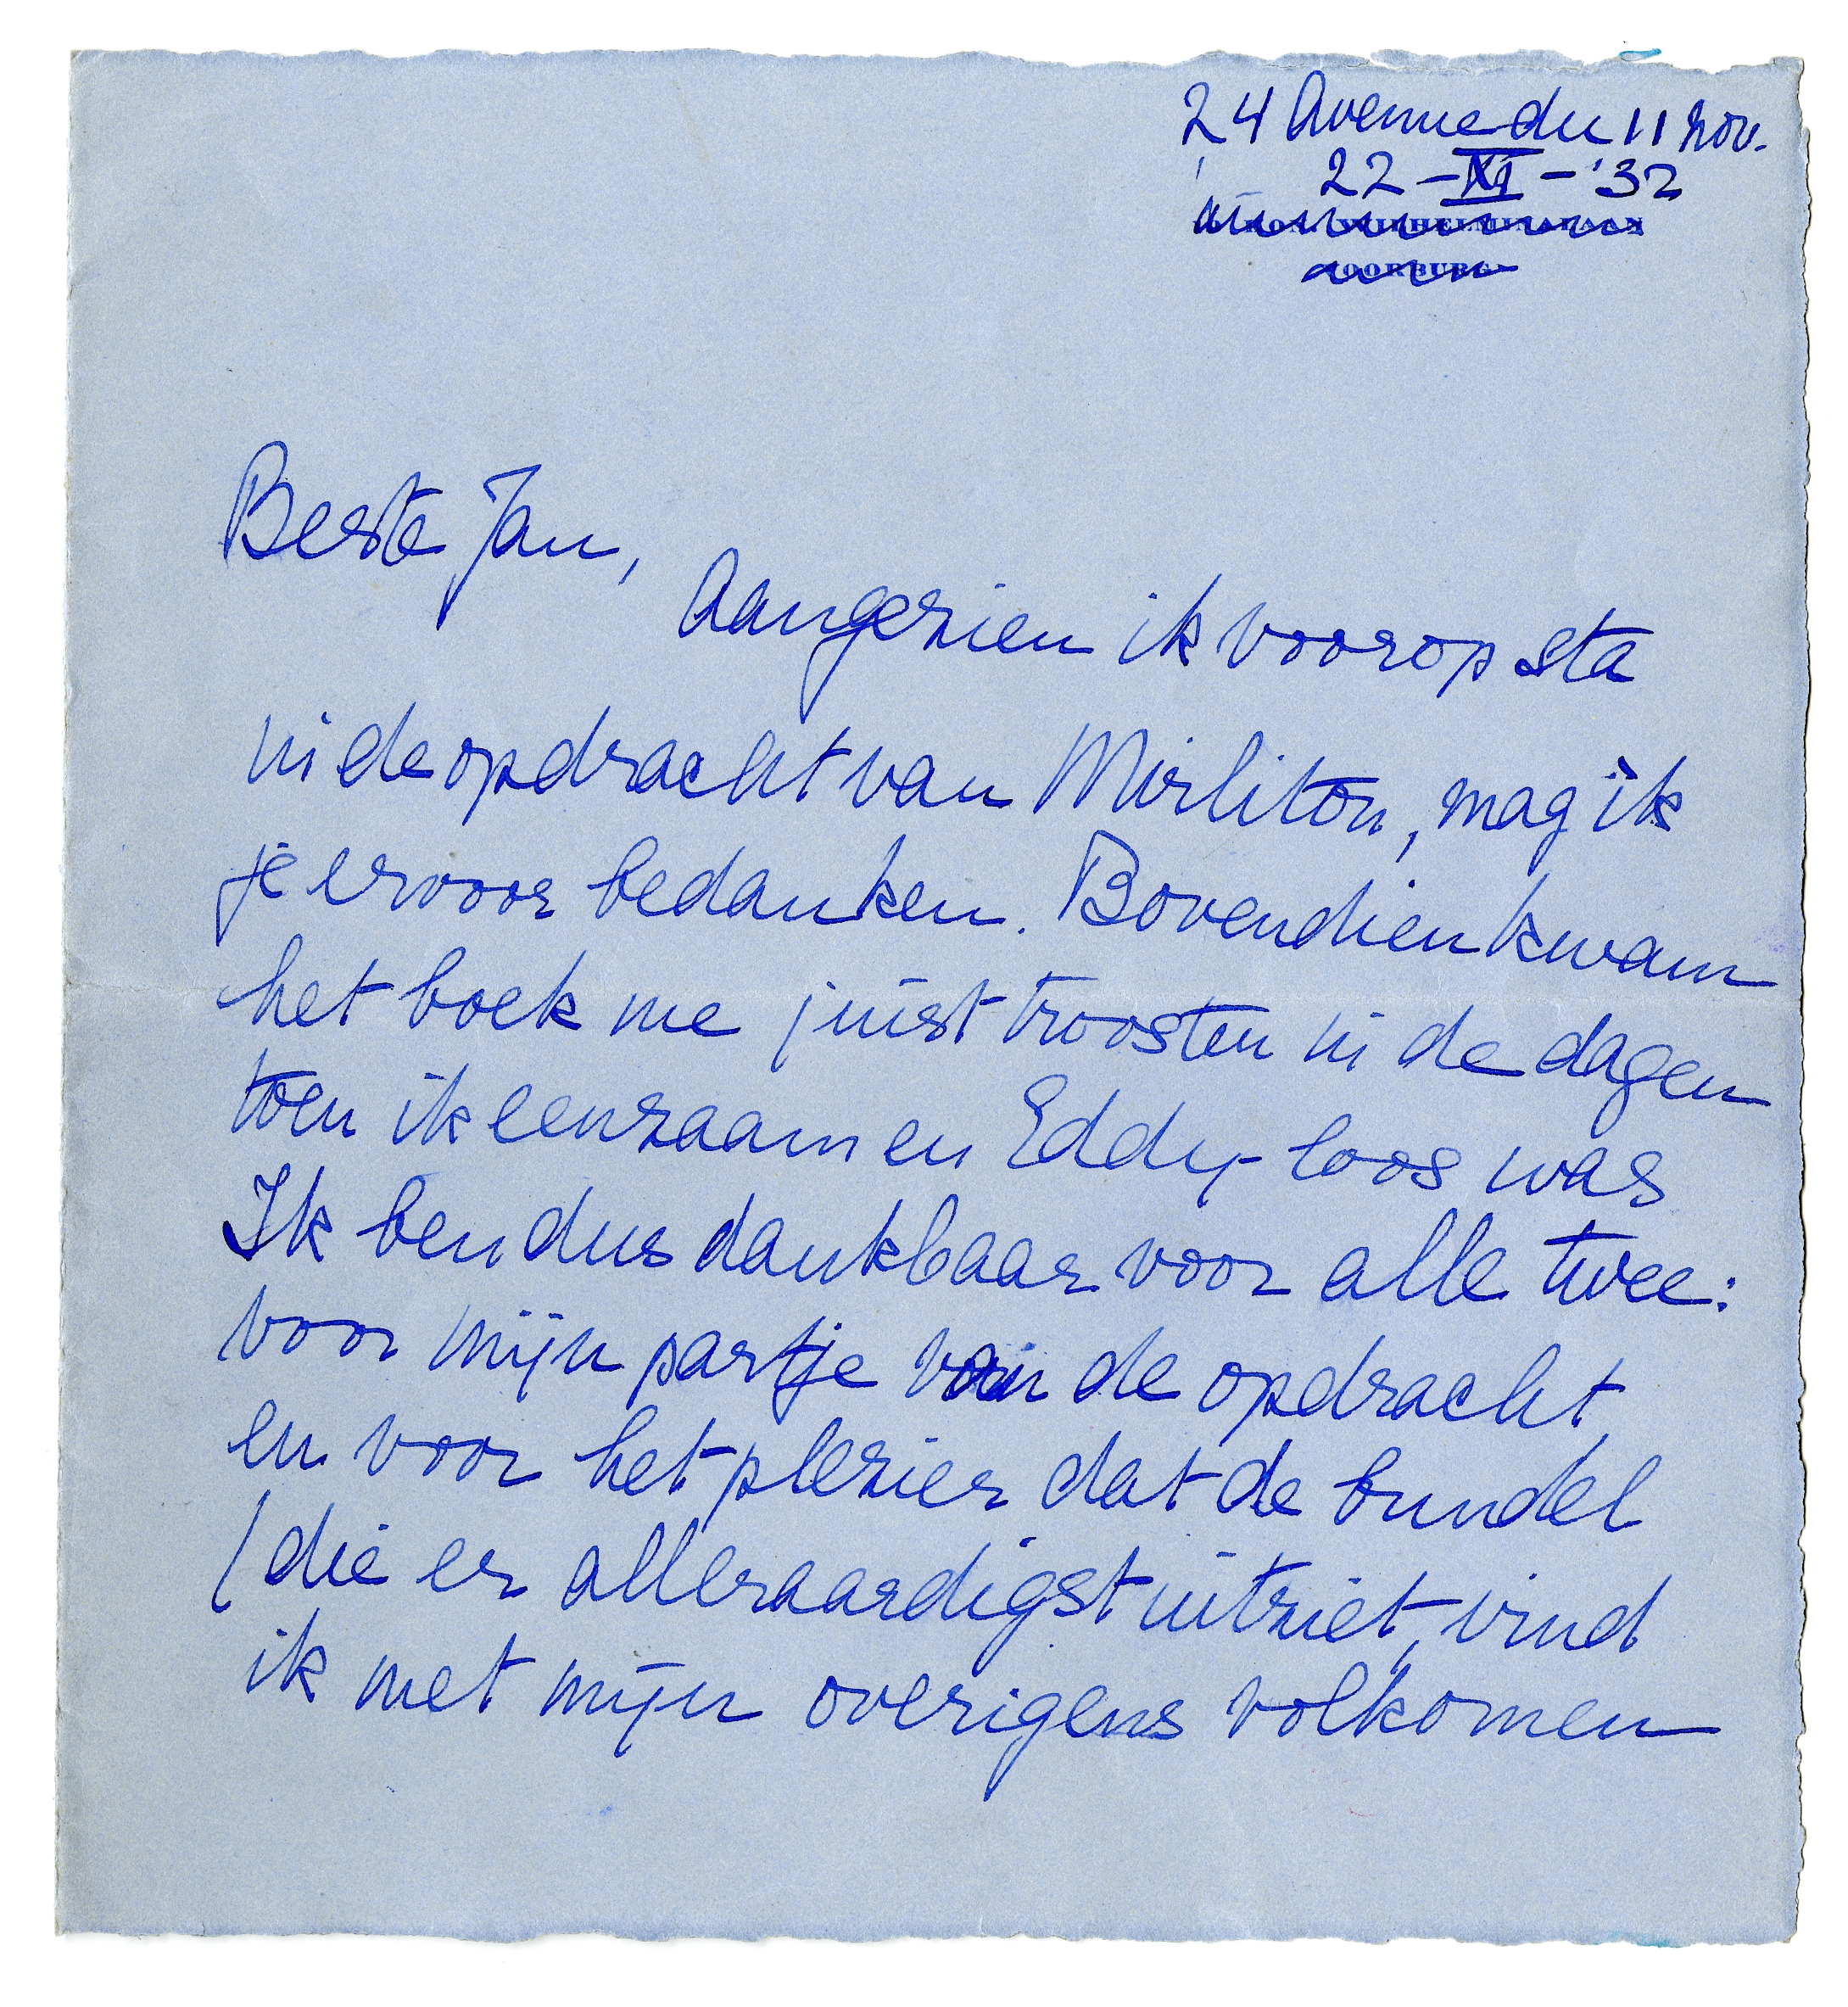 24 Avenue du 11 Nov.
22-XI-'32
KON. WILHELMINALAAN
VOORBURG
Beste Jan,
Aangezien ik voorop sta
in de opdracht van Mirliton, mag ik
je ervoor bedanken. Bovendien kwam
het boek me juist troosten in de dagen
toen ik eenzaam en Eddy-loos was
Ik ben dus dankbaar voor alle twee:
voor mijn partje van de opdracht
en voor het plezier dat de bundel
(die er alleraardigst uitziet, vind
ik met mijn overigens volkomen